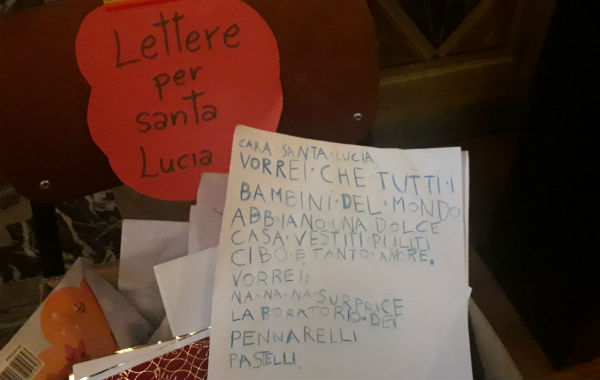 Lettere
per
santa
Lucia
CARA SANTA LUCIA,
VORREI·CHE TUTTI·I
BAMBINI·DEL·MONDO
ABBIANO·UNA DOLCE
CASA·VESTITI PULITI
CIBO E TANTO AMORE.
VORREI:
NA·NA·NA·SURPRICE
LABORATORIO·DEI
PENNARELLI
PASTELLI.